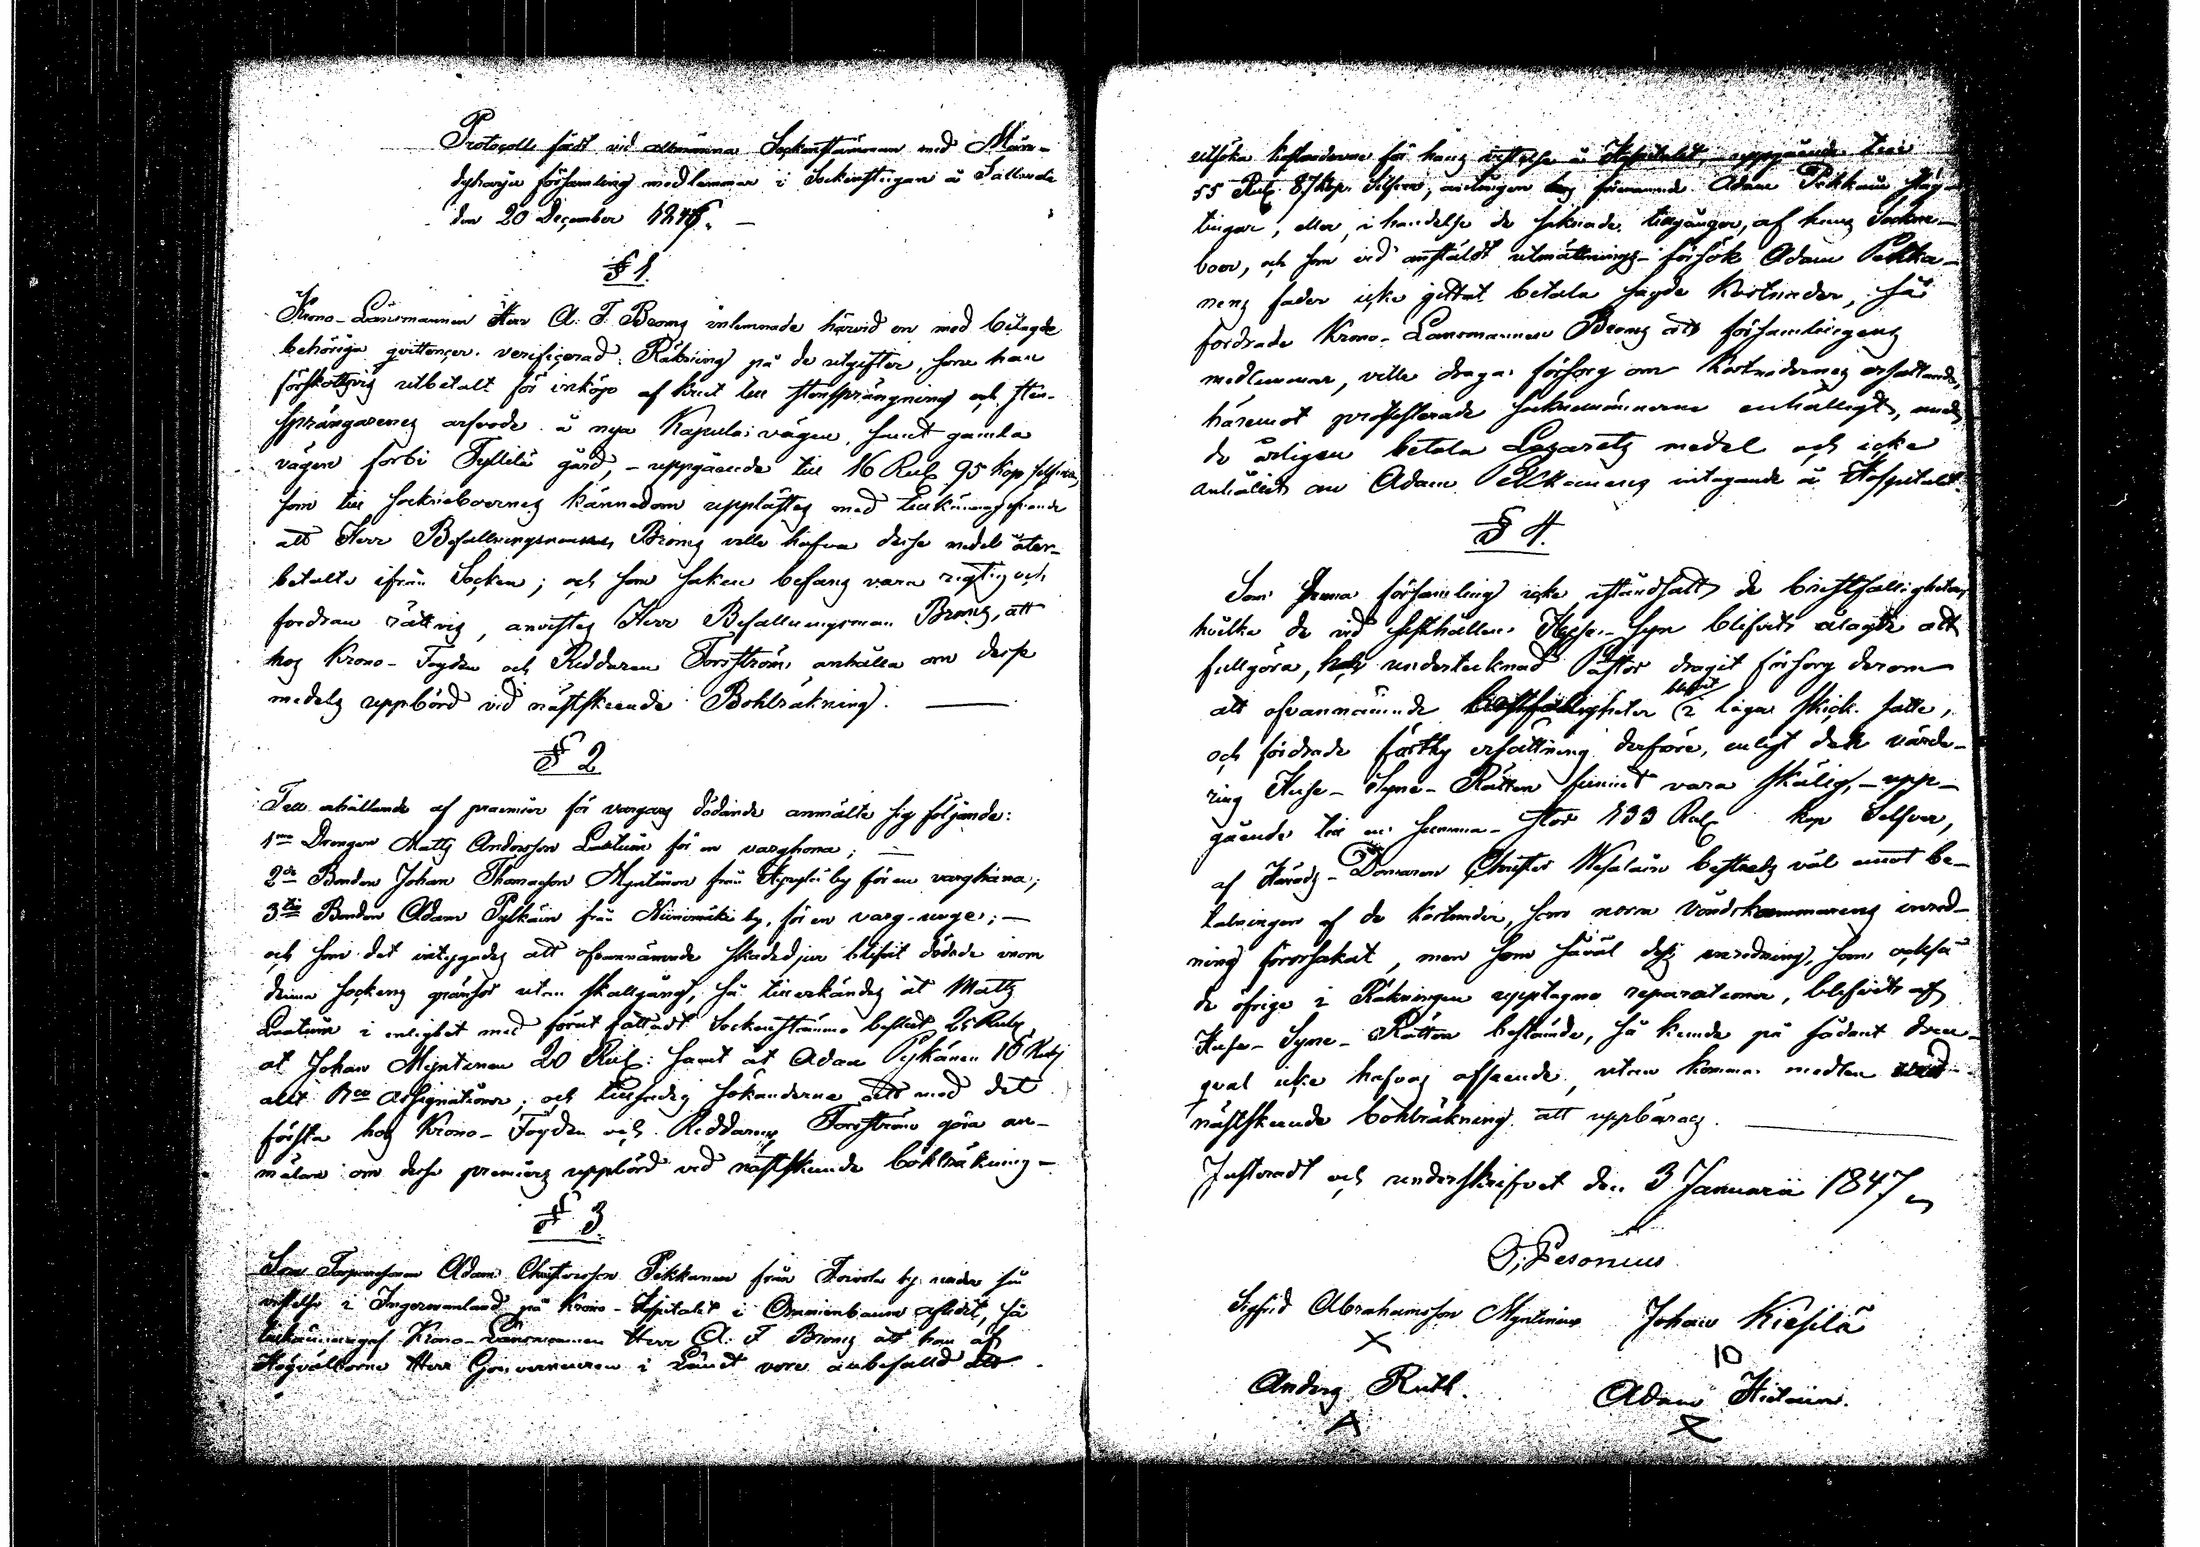 Protocoll fördt vid allmänna Sockenstämman med Men-
dyharju församlings medlemmar i Sockenstugan å Sallorda
den 20 December 1846. —
§ 1.
Krono-Länsmannen Herr A. F. Broms inlemnade härvid en med bilagde
behöriga qvittencer verificerad Räkning på de utgifter, som han
förskottsvis utbetalt för inköp af krut till stensprängning och sten-
sprängarens arfvode å nya vägen, samt gamla
vägen förbi gård, – uppgående till 16 Rub. 95 kop silfver,
som till Sockneboernes kännedom upplästes med tillkännagifvande
att Herr Befallningsman Broms ville hafva desse medel åter-
betalte ifrån Socken; och som saken befans vara rigtig och
fordran rättvis, anvistes Herr Befallningsman Broms, att
hos Krono-Fogden och Riddaren Forsström anhålla om desse
medels uppbörd vid nästskeende Bohlräkning. —
§ 2
Till erhållande af præmier för vargars dödande anmälte sig följande:
1mo Drengen Matts Andersson för en varghona; —
2do Bonden Johan Thomasson Myntinen från by för en varghane;
3tio Bonden Adam från Niinimäki by, för en varg-unge; —
och som det intygades att ofvannämnde skadedjur blifvit dödade inom
denna sockens gränsor utan skallgång, så tillerkändes åt Matts
i enlighet med förut fattadt Sockenstämmo beslut 25 Rub,
åt Johan Myntinen 20 Rub: samt åt Adam 10 Rub
allt Bco Assignationer; och sökanderne att med det
första hos Krono-Fogden och Riddaren Forsström göra an-
mälan om desse premiers uppbörd vid nästskeende bohlräkning –
§ 3.
Som Adam Christersson Pekkanen från by under sin
vistelse i Ingermanland på Krono-Hospitalet i Oranienbaum aflidit, så
tillkännagaf Krono-Länsmannen Herr A. F. Broms att han af
Högvälborne Herr Gouverneuren i Länet vore anbefalld att
utsöka kostnaderne för hans vistelse å Hospitalet, uppgående till
55 Rub. 87 kop. Silfver, antingen hos förenämnde Adam Pekkanens släg-
tingar, eller, i händelse de saknade tillgångar, af hans Sockne-
boer, och som vid anstäldt utmätnings-försök Adam Pekka-
nens fader icke gittat betala sagde kostnader, så
fordrade Krono-Länsmannen Broms att församlingens
medlemmar, ville draga försorg om kostnadernes ersättande,
häremot protesterade socknemännerne enhälligt, emedan
de årligen betala Lazaretts medel och icke
anhållit om Adam Pekkanens intagande å Hospitalet.
§ 4.
Som denna församling icke iståndsatt de bristfälligheter,
hvilka de vid sisthållen Huse-Syn blifvit ålagde att
fullgöra, har undertecknad Pastor dragit försorg derom
att ofvannämnde bristfälligheter blifvit i laga skick satte,
och fordrade förthy ersättning derföre, enligt den värde-
ring Huse-Syne-Rätten funnit vara skälig, – upp-
gående till en summa stor 133 Rub. kop Silfver,
af Härads-Domaren Christer bestreds väl emot be-
talningen af de kostnader, som norra inred-
ning förorsakat, men som såväl dess inredning, som också
de öfrige i Räkningen upptagne reparationer, blifvit af
Huse-Syne-Rätten bestämde, så kunde på sådant
qval icke hafvas afseende, utan komma medlen vid
nästskeende bohlräkning att uppbäras. —
Justeradt och underskrifvet den 3 Januarii 1847
G. Pesonius
Sigfrid Abrahamsson Myntinen Johan Kiesilä
X 10
Anders Ruth. Adam Hietain.
A Z